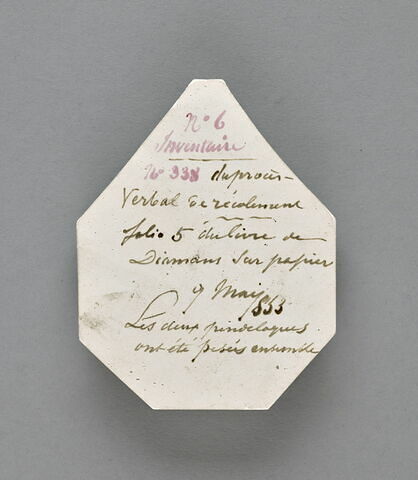 N° 6
Inventaire
N° 338 du procès-
Verbal de récolement
folio 5 du livre de
Diamans Sur papier
9 Mai 1853
Les deux pendeloques
ont été pesés ensemble